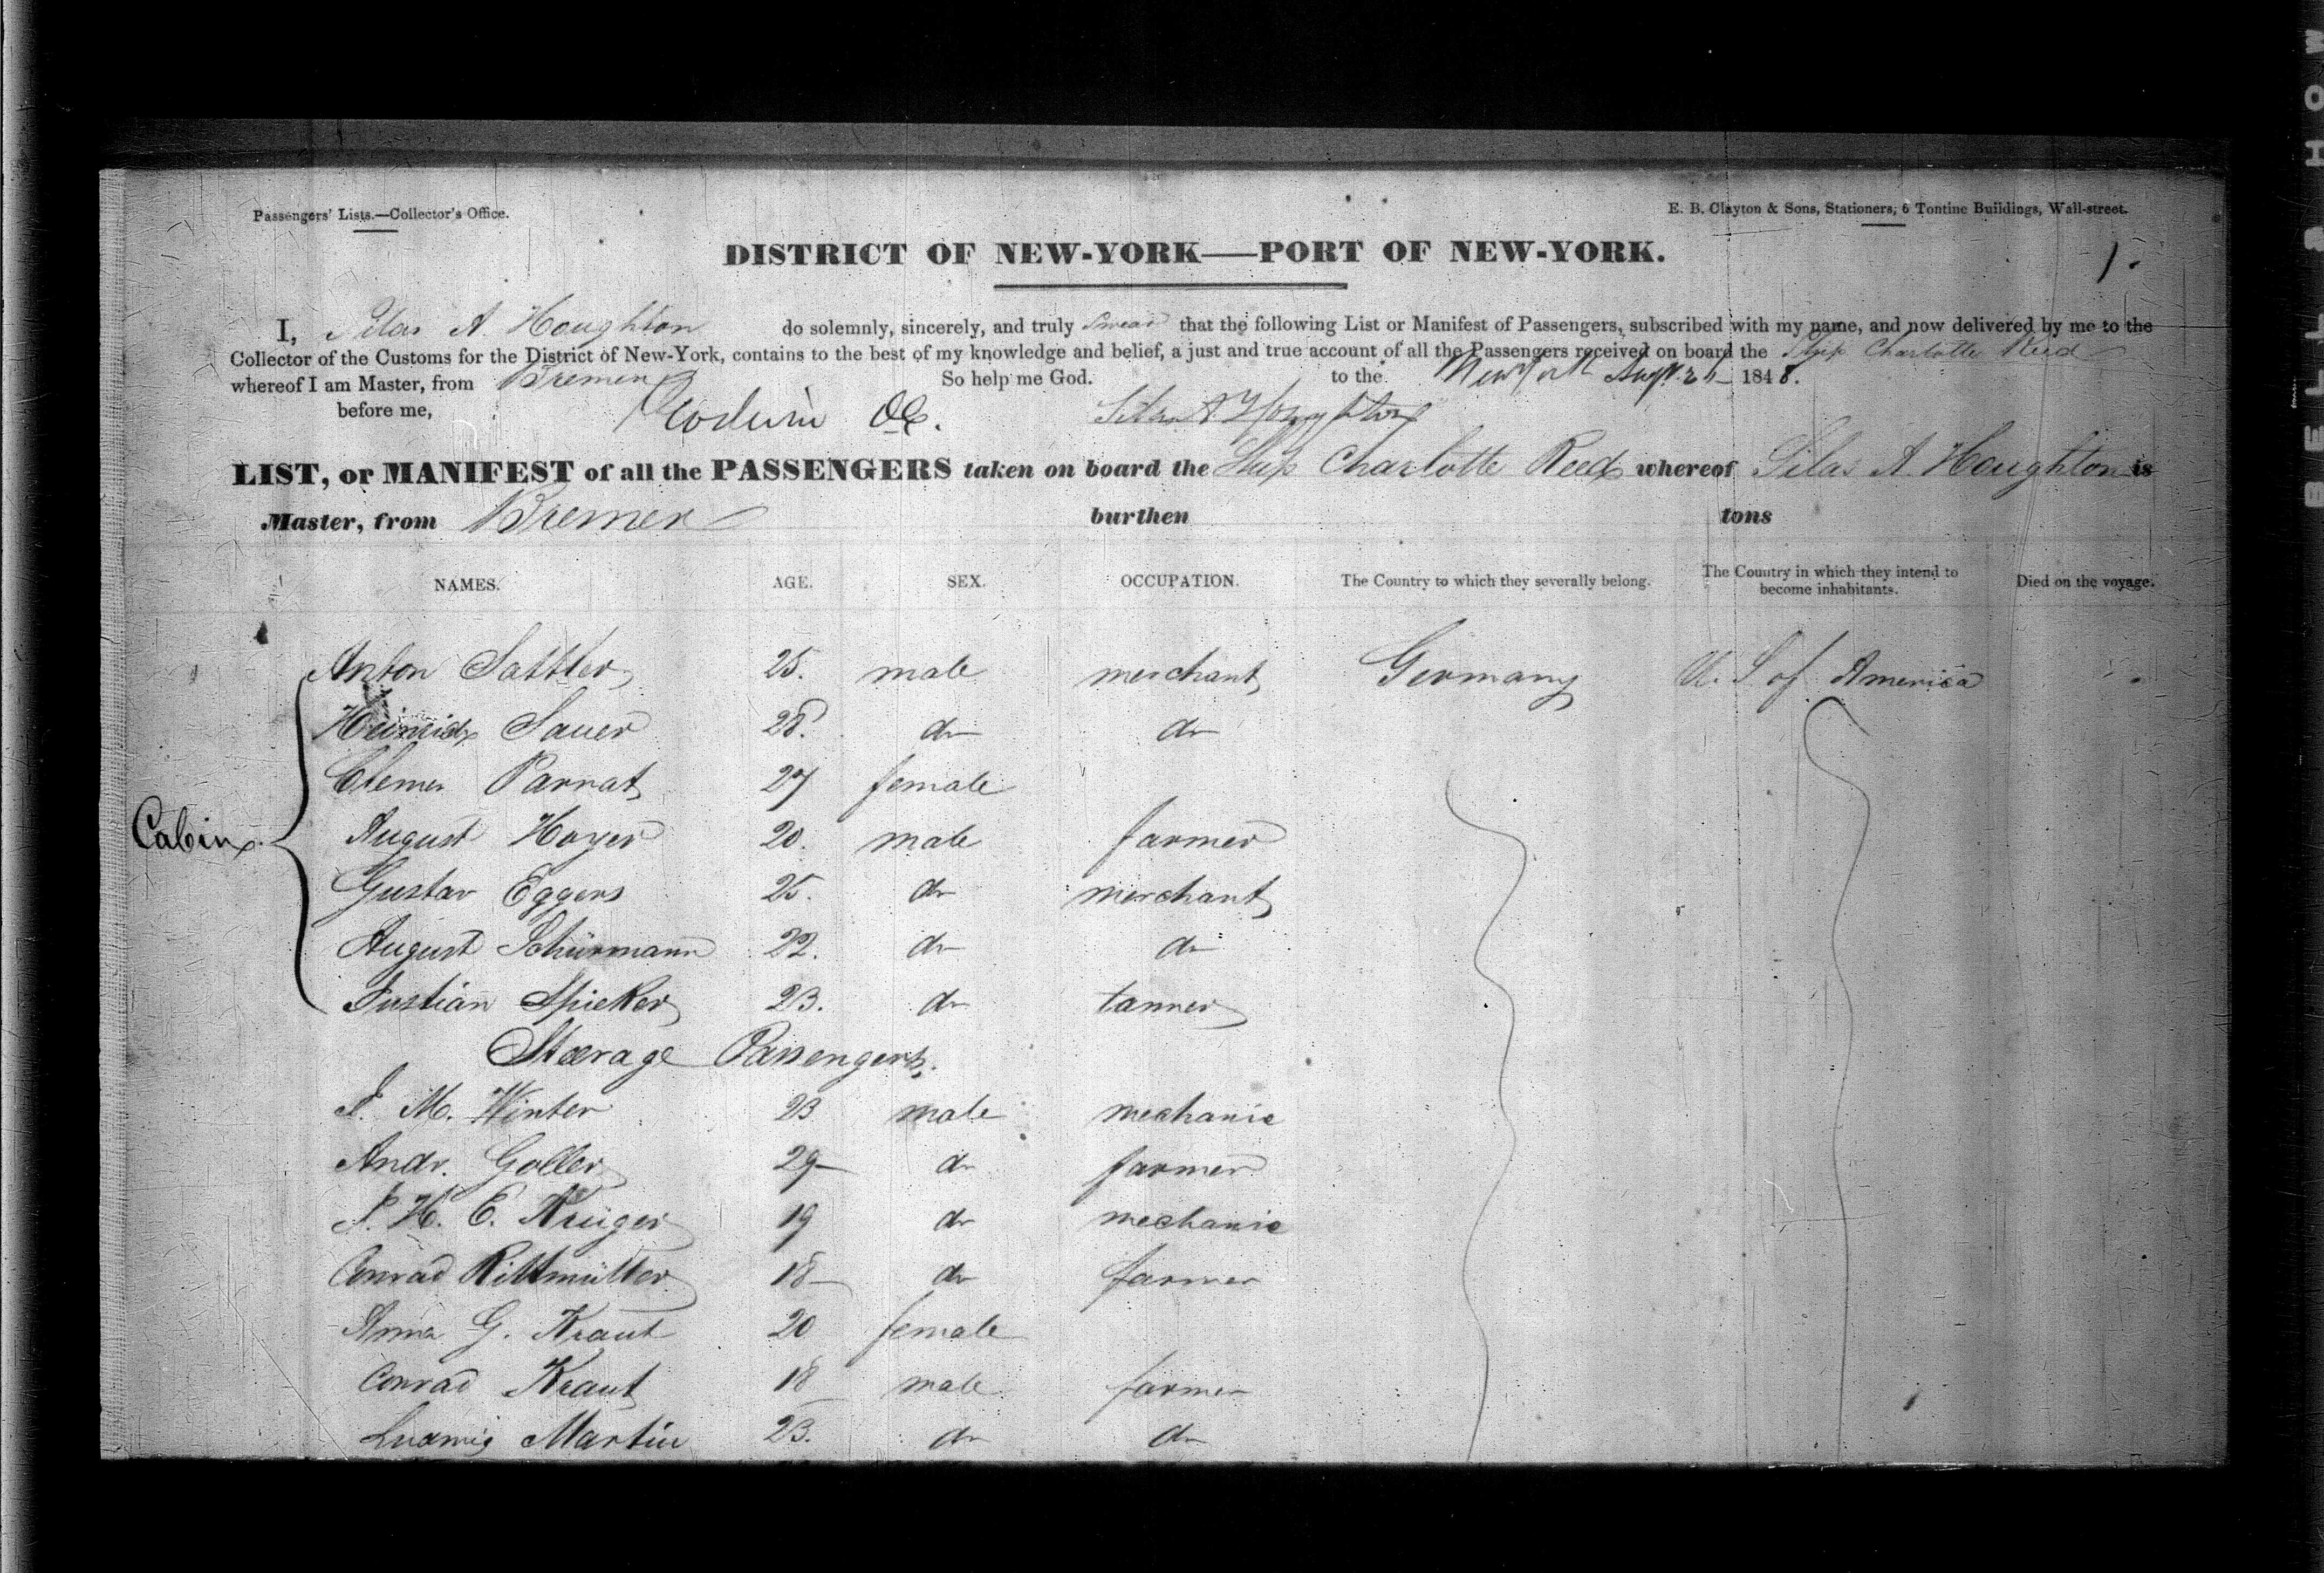 Passengers' Lists.—Collector's Office.
E. B. Clayton & Sons, Stationers, 6 Tontine Buildings, Wall-street.
DISTRICT OF NEW-YORK—PORT OF NEW-YORK.
1.
I, Silas A. Houghton do solemnly, sincerely, and truly swear that the following List or Manifest of Passengers, subscribed with my name, and now delivered by me to the
Collector of the Customs for the District of New-York, contains to the best of my knowledge and belief, a just and true account of all the Passengers received on board the Ship Charlotte Reed
whereof I am Master, from Bremen So help me God. to the New York Augt. 1848.
before me, Silas A. Houghton
LIST, or MANIFEST of all the PASSENGERS taken on board the Ship Charlotte Reed whereof Silas A Houghton is
Master, from Bremen burthen tons
NAMES. AGE. SEX. OCCUPATION. The Country to which they severally belong. The Country in which they intend to become inhabitants. Died on the voyage.
Cabin
Anton Sattler 25. male merchant Germany U. S of America
Heinrich Sauer 28. do do
Parrat 27 female
August Hoyer 20. male farmer
Gustav Eggers 25. do merchant
August Schürmann 22. do do
Justian Spieker 23. do tanner
Steerage Passengers.
J. M. Winter 23 male mechanic
Andr. Goller 29 do farmer
J. H. E. Krüger 19 do mechanic
Conrad Rittmüller 18 do farmer
Anna G. Kraut 20 female
Conrad Kraut 18 male farmer
Ludwig Martin 23. do do